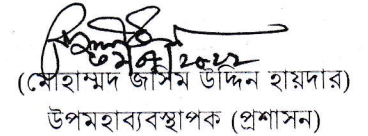 (মোহাম্মদ জসিম উদ্দিন হায়দার)
উপমহাব্যবস্থাপক (প্রশাসন)